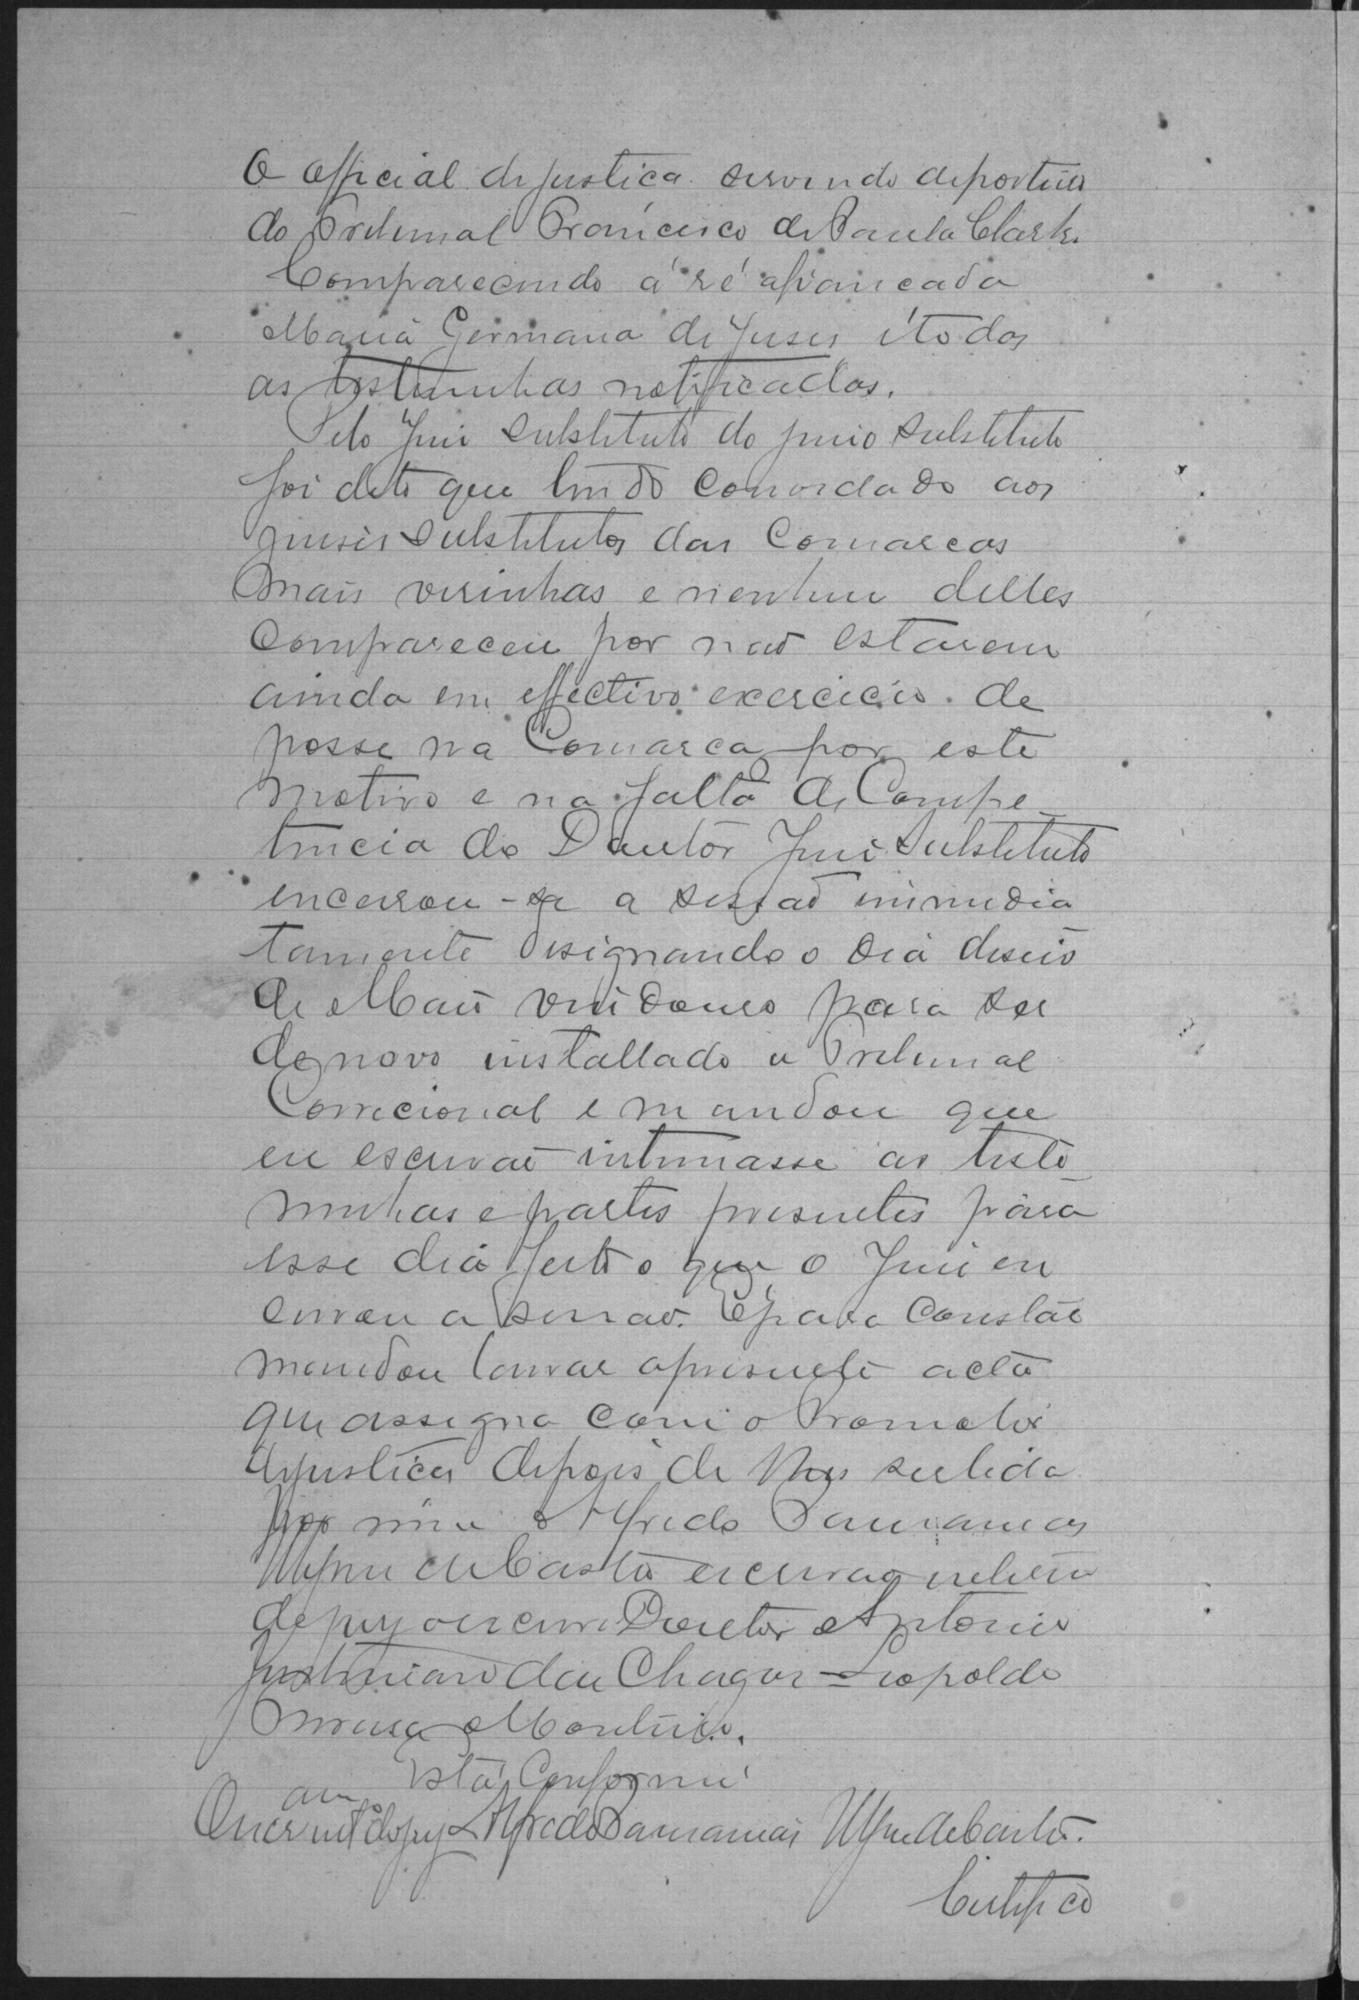 O official de justica servindo de porteiro
do Tribunal Francisco de Paula Clark.
Comparecendo a ré afiancada
Maria Germana de Jesus e todas
as testimunhas notificadas.
Pelo Juiz substituto do juizo substituto
foi dito que tendo convidado aos
juises substitutos das Comarcas
mais visinhas e nenhum delles
compareceu por não estarem
ainda em effectivo exercicio de
posse na Comarca por este
motivo e na falta de Compe-
tencia do Doutor Juiz Substituto
encerrou-se a sessão immedia
tamente designando o dia deseis
de Maio vindouro para ser
de novo installado o Tribunal
Correcional e mandou que
eu escrivão intimasse as teste
munhas e partes presentes para
esse dia feito o que o Juiz en
cerrou a sessão. E para constar
mandou lavrar a presente acta
que assigna com o Promotor
de justica depois de lhes ser lida
por mim Alfredo
de Castro escrivão interino
do jury o escrevi Doutor Antonio
Justiniano das Chagas = Leopoldo
Monteiro.
Está Conforme
O escrivão do jury Alfredo de Castro.
Certifico